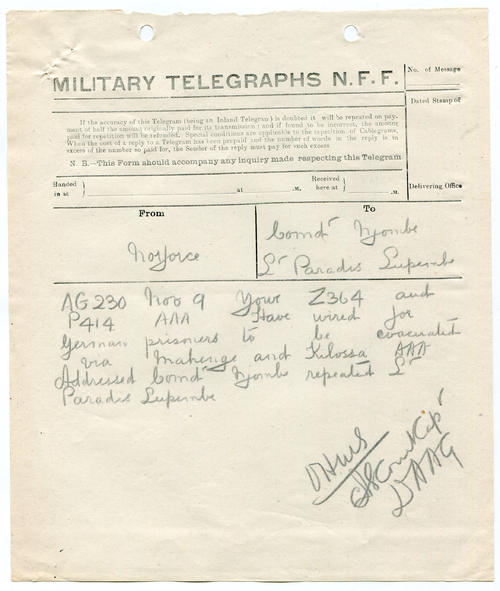 MILITARY TELEGRAPHS N.F.F.
No. of Message
Dated Stamp of
If the accuracy of this Telegram (being an Inland Telegram) is doubted it will be repeated on pay-
ment of half the amount originally paid for its transmission; and if found to be incorrect, the amount
paid for repetition will be refunded. Special conditions are applicable to the repetition of Cablegrams.
When the cost of a reply to a Telegram has been prepaid and the number of words in the reply is in
excess of the number so paid for, the Sender of the reply must pay for such excess
N. B.—This Form should accompany any inquiry made respecting this Telegram
Handed in at } at .M.
Received here at } .M.
Delivering Office
From
To
Norforce
Comdt Njombe
Lt Paradis Lupembe
AG230 Nov 9 Your Z364 and
P414 AAA Have wired for
German prisoners to be evacuated
via Mahenge and Kilossa AAA
Addressed Comdt Njombe repeated Lt
Paradis Lupembe
OHMS
Capt
DAAG